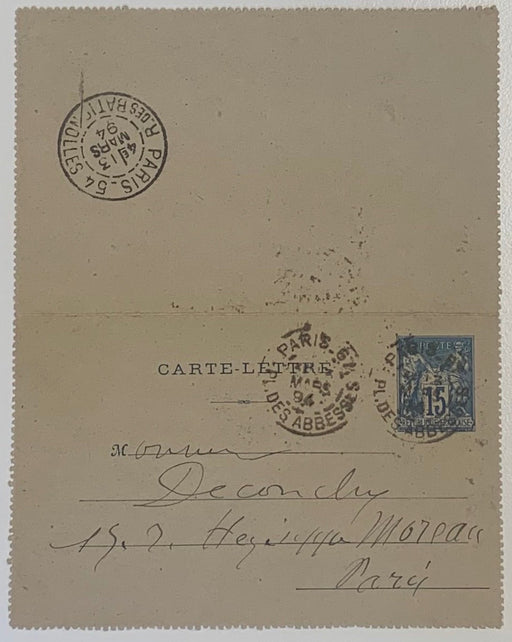 PARIS_54
R. DES BATIGNOLLES
4E 13
MARS
94
CARTE-LETTRE
PARIS-
PL. DES ABBESSES
MARS
94
15
PL. DES ABB
Monsieur
Deconchy
15. r. Hégésippe Moreau
Paris